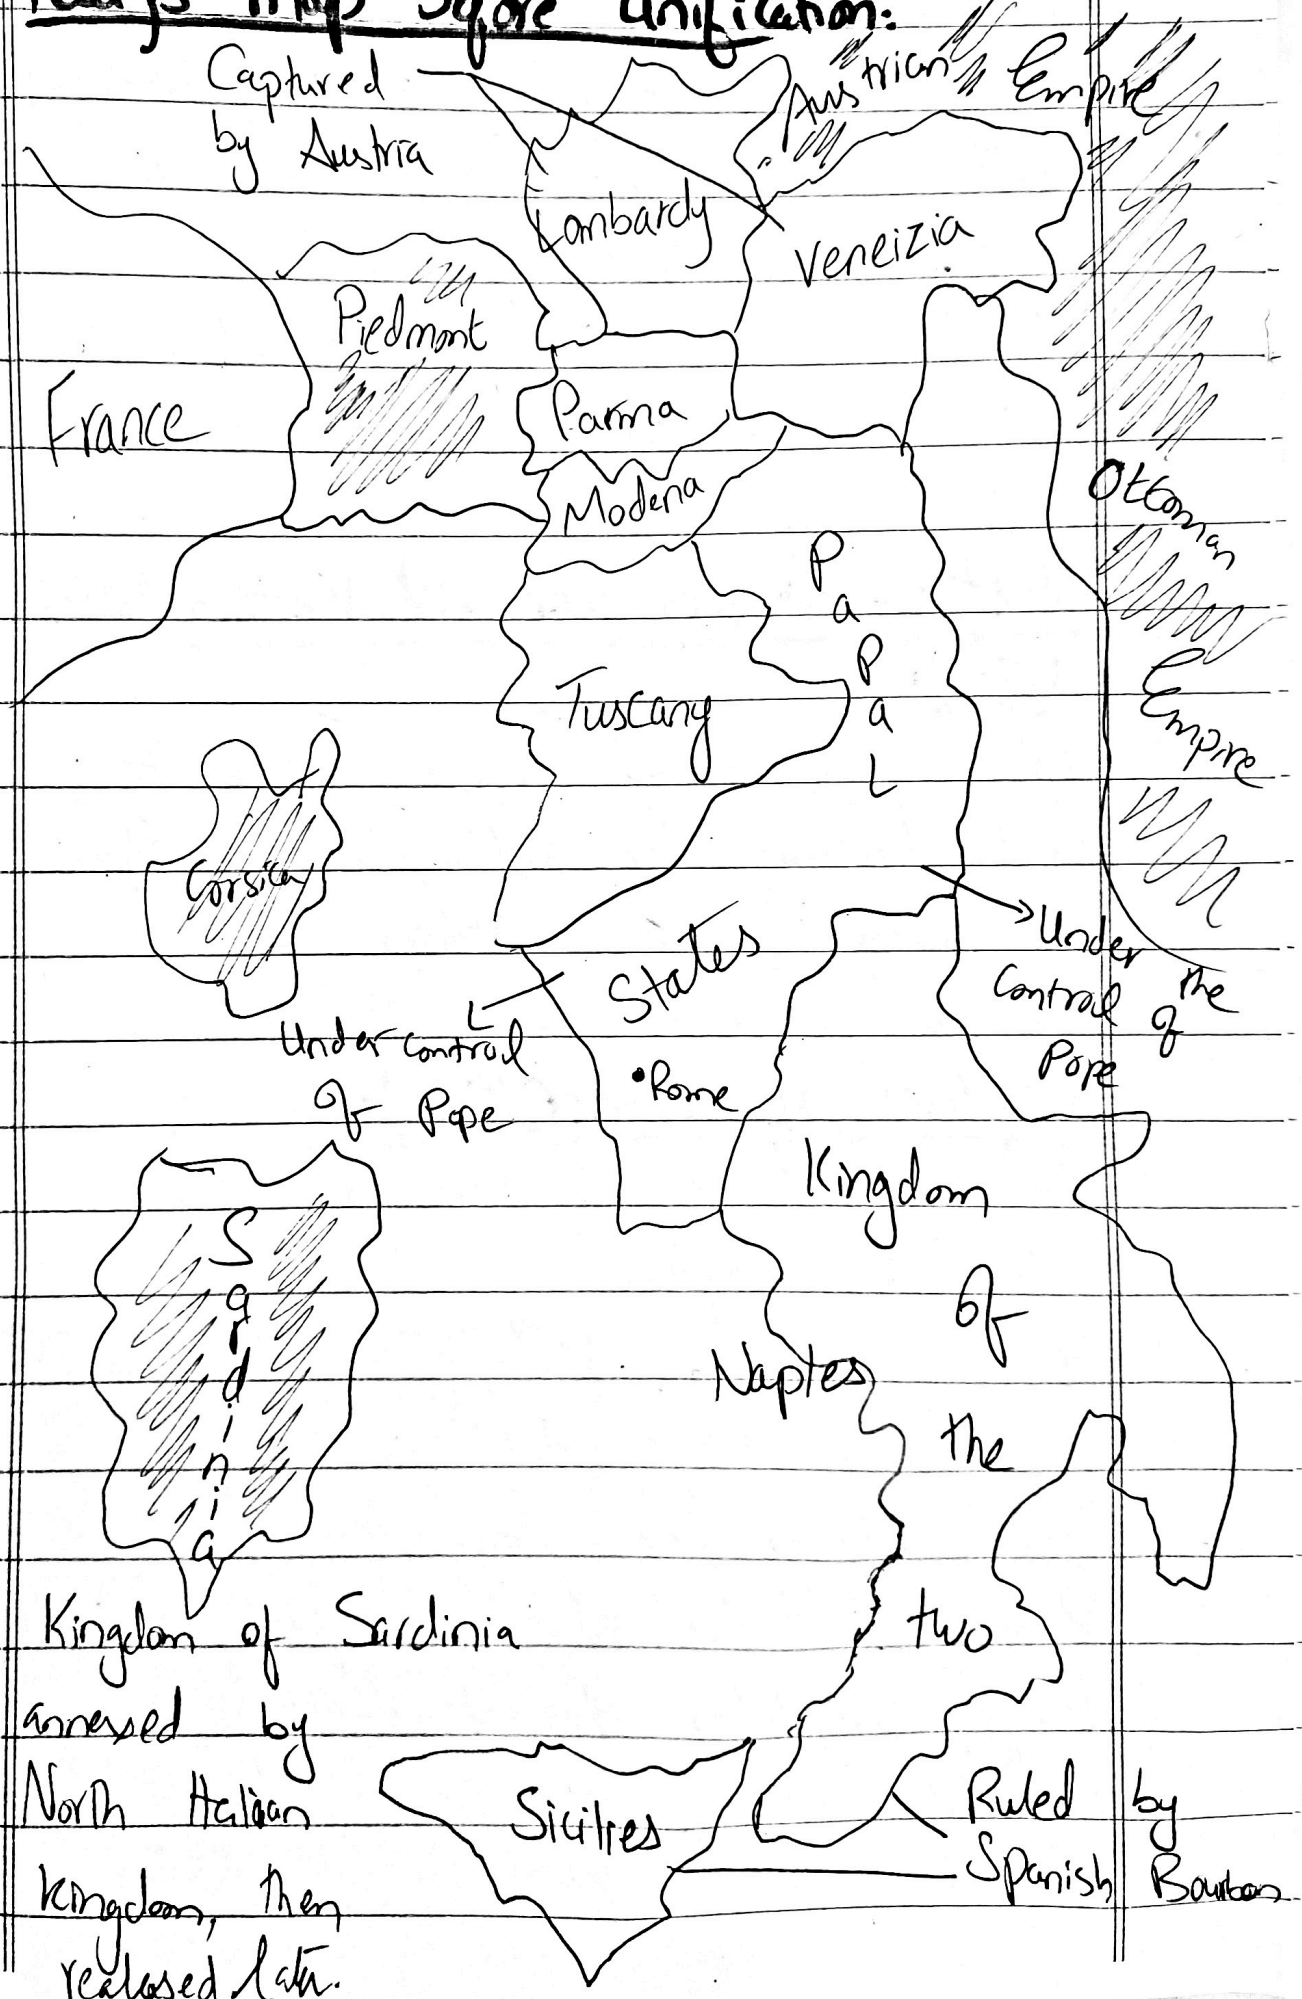 Italy's map before unification:
Captured
by Austria
Austrian Empire
Lombardy
Veneizia
Piedmont
France
Parma
Modena
Ottoman
Empire
Papal
Tuscany
Corsica
States
Under
Control of the
Pope
Under control
of Pope
•Rome
Sardinia
Kingdom
of
Naples
the
two
Kingdom of Sardinia
annexed by
North Italian
kingdom, then
realased later.
Sicilies
Ruled by
Spanish Bourbon